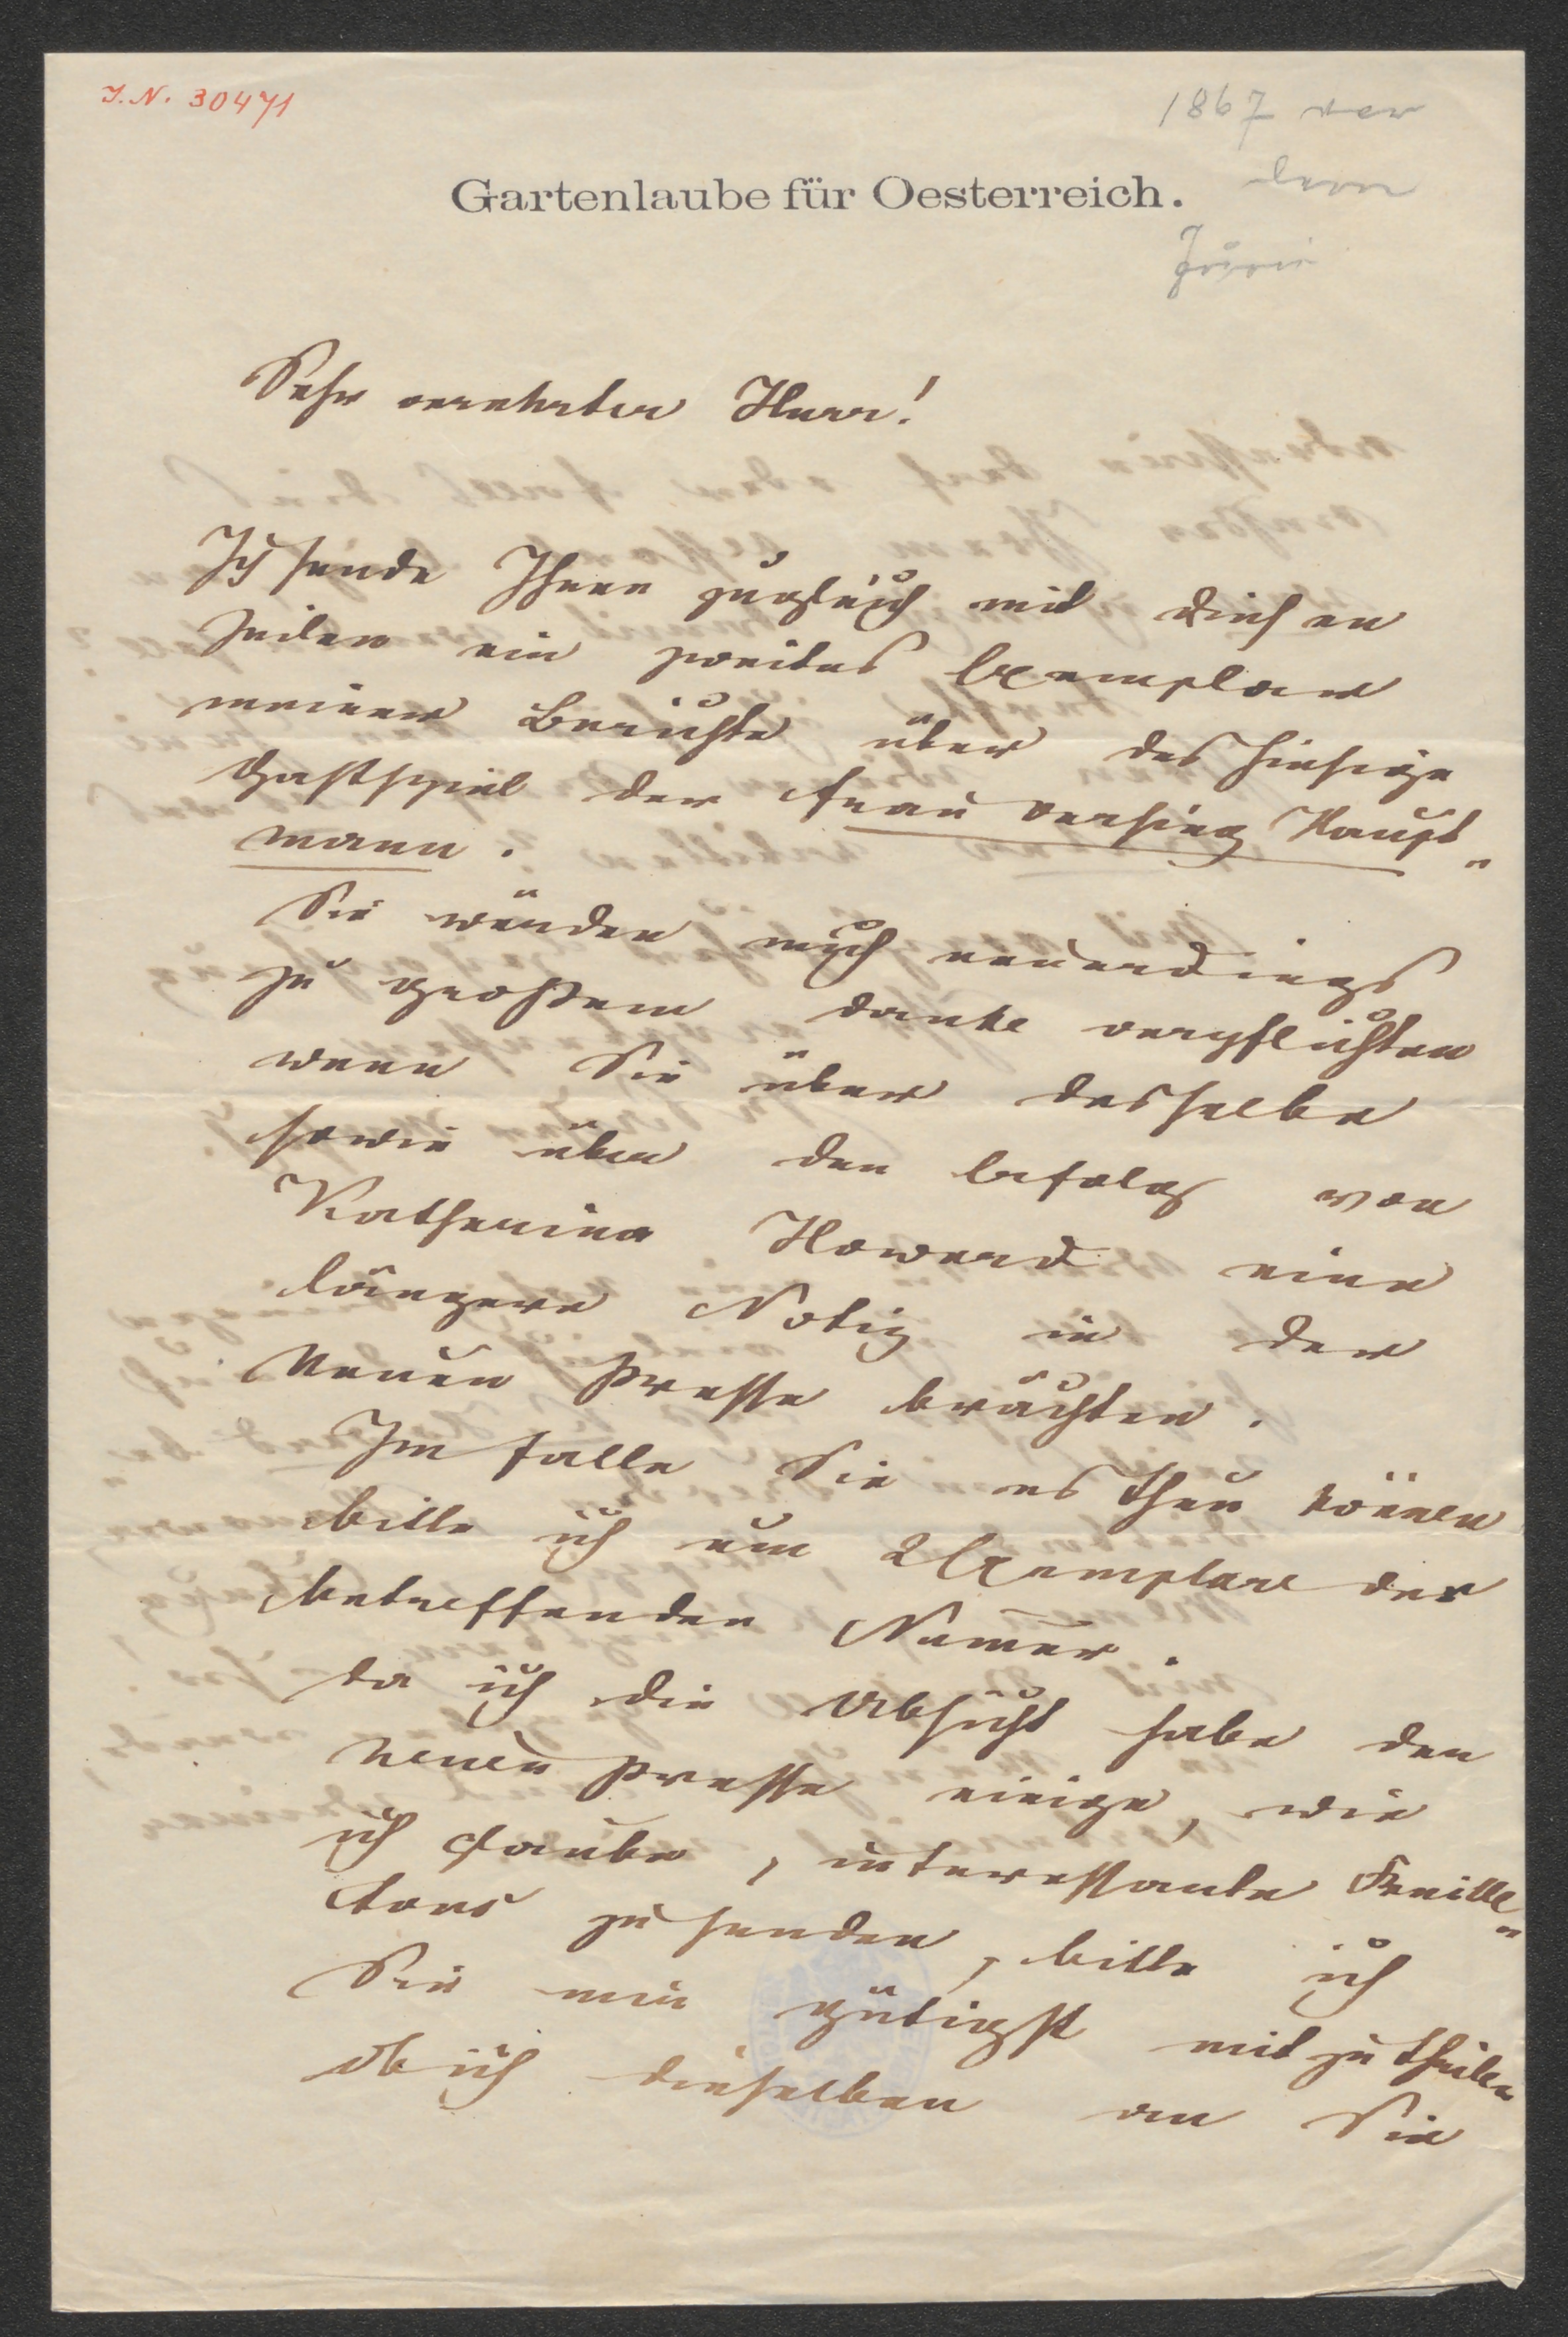 I.N. 30471
1867 vor
dem
Juni
Gartenlaube für Oesterreich.
Sehr verehrter Herr!
Ich sende Ihnen zugleich mit diesen
Zeilen ein zweites Exemplar
meiner Berichte über das hiesige
Gastspiel der Frau Versing Haupt„
mann.
Sie würden mich neuerdings
zu großem Danke verpflichten
wenn Sie über dasselbe
sowie über den Erfolg von
Katharina Howard eine
längere Notiz in der
Neuen Presse brächten.
Im Falle Sie es thun können
bitte ich um 2 Exemplare der
betreffenden Numer.
Da ich die Absicht habe der
Neuen Presse einige, wie
ich glaube, interessante Feuille„
tons zu senden, bitte ich
Sie mir gütigst mitzutheilen
ob ich dieselben an Sie